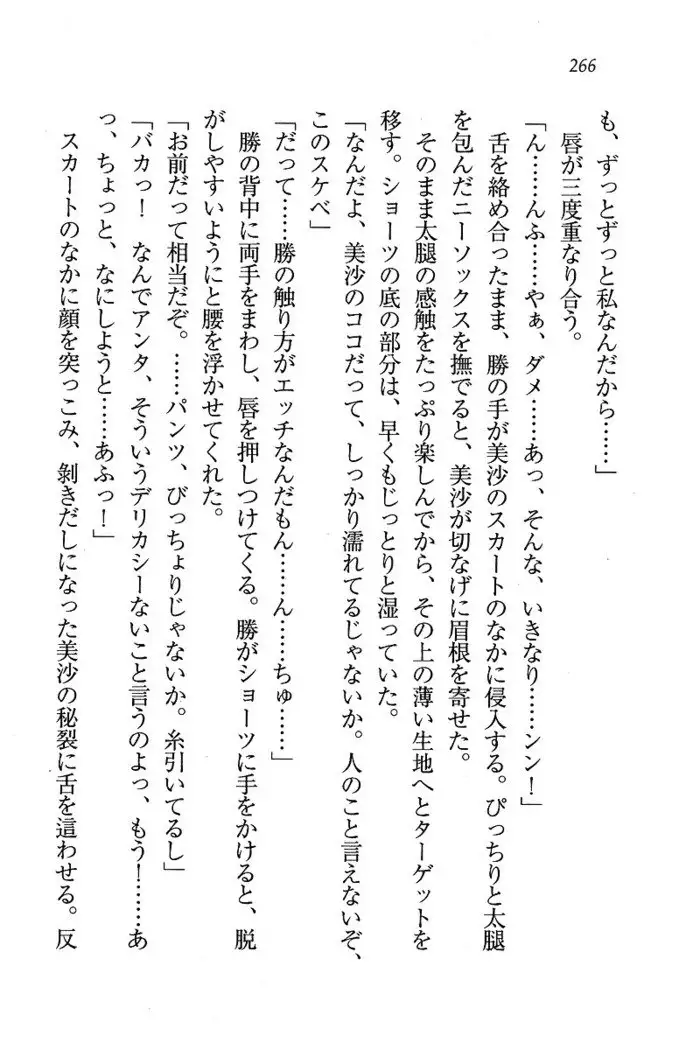 266
も、ずっとずっと私なんだから……」
唇が三度重なり合う。
「ん……んふ……やぁ、ダメ……あっ、そんな、いきなり……シン！」
舌を絡め合ったまま、勝の手が美沙のスカートのなかに侵入する。ぴっちりと太腿
を包んだニーソックスを撫でると、美沙が切なげに眉根を寄せた。
そのまま太腿の感触をたっぷり楽しんでから、その上の薄い生地へとターゲットを
移す。ショーツの底の部分は、早くもじっとりと湿っていた。
「なんだよ、美沙のココだって、しっかり濡れてるじゃないか。人のこと言えないぞ、
このスケベ」
「だって……勝の触り方がエッチなんだもん……ん……ちゅ……」
勝の背中に両手をまわし、唇を押しつけてくる。勝がショーツに手をかけると、脱
がしやすいようにと腰を浮かせてくれた。
「お前だって相当だぞ。……パンツ、びっちょりじゃないか。糸引いてるし」
「バカっ！　なんでアンタ、そういうデリカシーないこと言うのよっ、もう！……あ
っ、ちょっと、なにしようと……あふっ！」
スカートのなかに顔を突っこみ、剝きだしになった美沙の秘裂に舌を這わせる。反